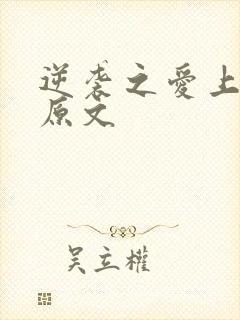 逆袭之爱上
原文
吴立权